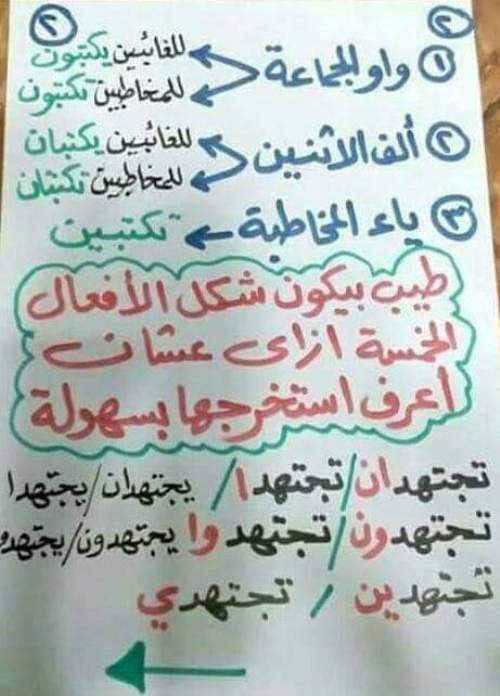 ٢ ٢
١ واو الجماعة للغائبين يكتبون
للمخاطبين تكتبون
٢ ألف الاثنين للغائبين يكتبان
للمخاطبين تكتبان
٣ ياء المخاطبة تكتبين
طيب بيكون شكل الأفعال
الخمسة ازاى عشان
أعرف استخرجها بسهولة
تجتهدان/تجتهدا/ يجتهدان/يجتهدا
تجتهدون/تجتهدوا يجتهدون/يجتهدو
تجتهدين / تجتهدي